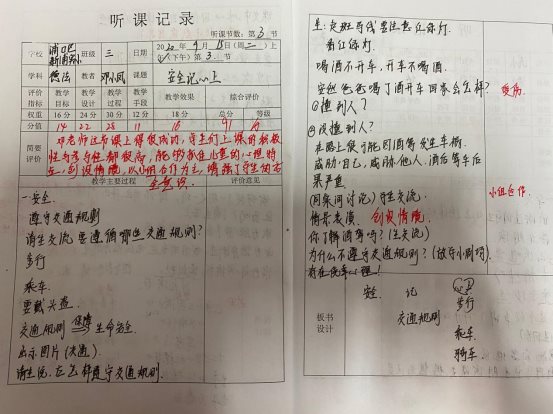 听课记录
听课节数：第 3 节
学校 浦口巴 班级 三 日期 2020年9月15日（周二）上
午（下）第 3 节
学科 德法 教者 邓小凤 课题 安全记心上
评价指标 教学目标 教学设计 教学过程 教学手段 教学效果 综合评价
权重 16分 24分 30分 12分 18分 总分 等级
分值 14 22 28 11 16 91 A
简要评价
邓老师这节课上得很成功，学生们上课的积极
性与参与性都很高，能够抓住儿童的心理特
点，创设情境，以小组合作为主，增强了学生的安
全意识。
教学主要过程 评价意见
一、安全.
遵守交通规则
请生交流：要遵循哪些交通规则？
步行
乘车.
要戴头盔.
交通规则 保障 生命安全.
出示图片（交流）.
请生说：应怎样遵守交通规则.
生：走斑马线要注意红绿灯.
看红绿灯.
喝酒不开车，开车不喝酒.
安然爸爸喝了酒开车回家会怎样？
①撞到人？
②没撞到人？
在路上很可能因酒驾发生车祸.
威胁自己，威胁他人.酒后驾车后
果严重.
（同桌间讨论）学生交流. 小组合作.
情景表演. 创设情境.
你了解酒驾吗？（生交流）
为什么不遵守交通规则？（放学小剧场）
存在侥幸心理！
板书设计
安全 记
步行
交通规则
乘车
骑车